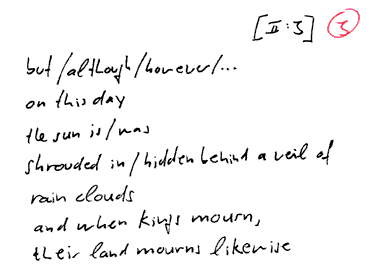 [II:3] 3
but/although/however/...
on this day
the sun is/was
shrouded in/hidden behind a veil of
rain clouds
and when kings mourn,
their land mourns likewise